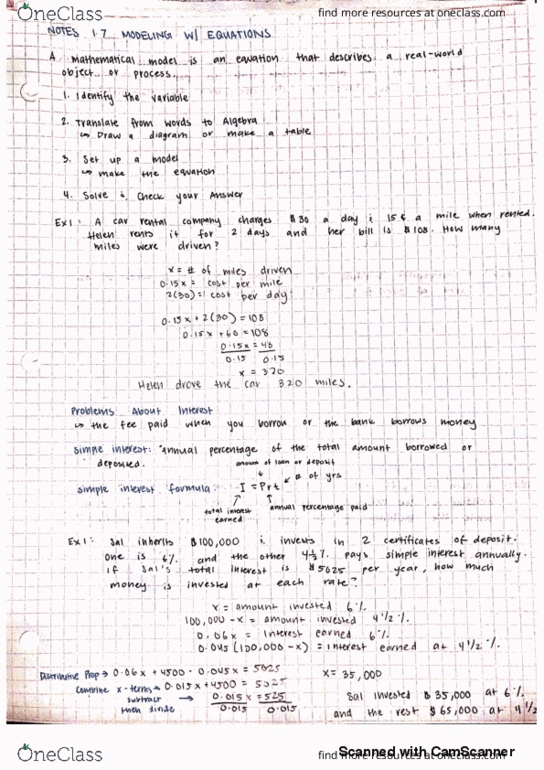 OneClass
find more resources at oneclass.com
NOTES 1.7 MODELING W/ EQUATIONS
A mathematical model is an equation that describes a real-world
object or process.
1. Identify the variable
2. Translate from words to Algebra
↳ Draw a diagram or make a table
3. Set up a model
↳ make the equation
4. Solve & Check your Answer
Ex1: A car rental company charges $30 a day & 15¢ a mile when rented.
Helen rents it for 2 days and her bill is $108. How many
miles were driven?
x = # of miles driven
0.15x = cost per mile
2(30) = cost per day
0.15x + 2(30) = 108
0.15x + 60 = 108
0.15x = 48
0.15 0.15
x = 320
Helen drove the car 320 miles.
Problems About Interest
↳ the fee paid when you borrow or the bank borrows money
simple interest: annual percentage of the total amount borrowed or
deposited.
amount of loan or deposit
simple interest formula: I = Prt # of yrs
total interest earned
annual percentage paid
Ex1: Sal inherits $100,000 & invests in 2 certificates of deposit.
One is 6% and the other 4½% pays simple interest annually.
If Sal's total interest is $5025 per year, how much
money is invested at each rate?
x = amount invested 6%
100,000 - x = amount invested 4 1/2%
0.06x = Interest earned 6%
0.045(100,000 - x) = interest earned at 4 1/2%
Distributive Prop → 0.06x + 4500 - 0.045x = 5025
x = 35,000
combine x-terms → 0.015x + 4500 = 5025
subtract → 0.015x = 525
then divide 0.015 0.015
Sal invested $35,000 at 6%
and the rest $65,000 at 4 1/2
OneClass
find more resources at oneclass.com
Scanned with CamScanner